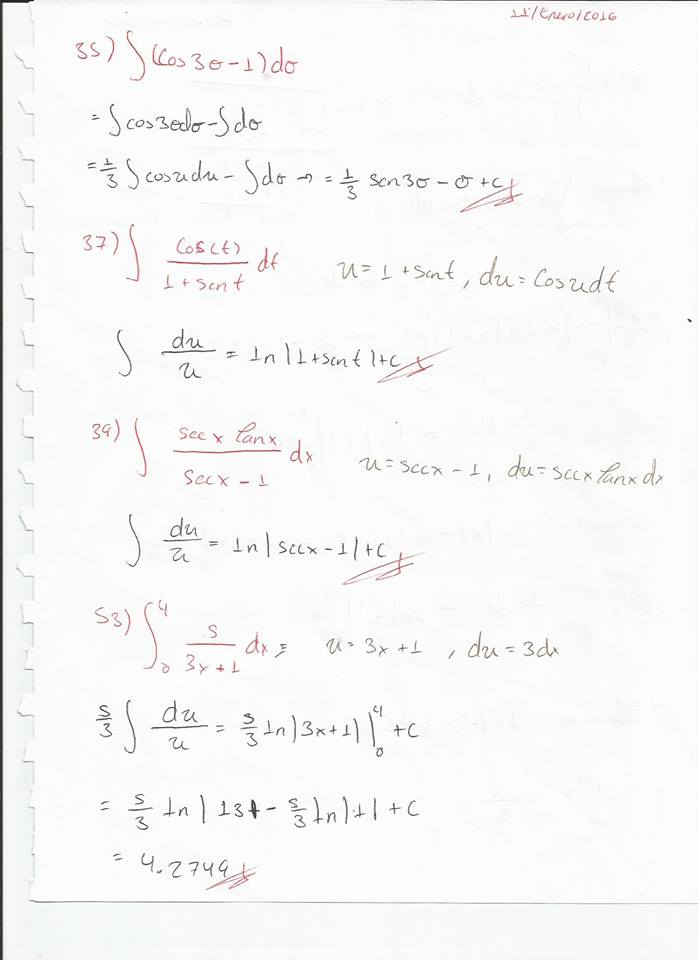 11/Enero/2016
35) ∫(cos3θ-1)dθ
= ∫cos3θdθ - ∫dθ
= 1/3 ∫cosudu - ∫dθ → = 1/3 sen3θ - θ + c
37) ∫ cos(t)/(1+sent) dt   u = 1+sent, du = cosudt
∫ du/u = ln|1+sent|+c
39) ∫ secx tanx/(secx-1) dx   u = secx-1, du = secx tanx dx
∫ du/u = ln|secx-1|+c
53) ∫₀⁴ 5/(3x+1) dx =   u = 3x+1, du = 3dx
5/3 ∫ du/u = 5/3 ln|3x+1| |₀⁴ + c
= 5/3 ln|13| - 5/3 ln|1| + c
= 4.2749